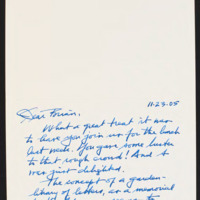 11-23-05
Dear Brian,
What a great treat it was
to have you join us for the lunch
last week. You gave some luster
to that rough crowd! And I
was just delighted.
The concept of a garden-
library of letters, as a memorial